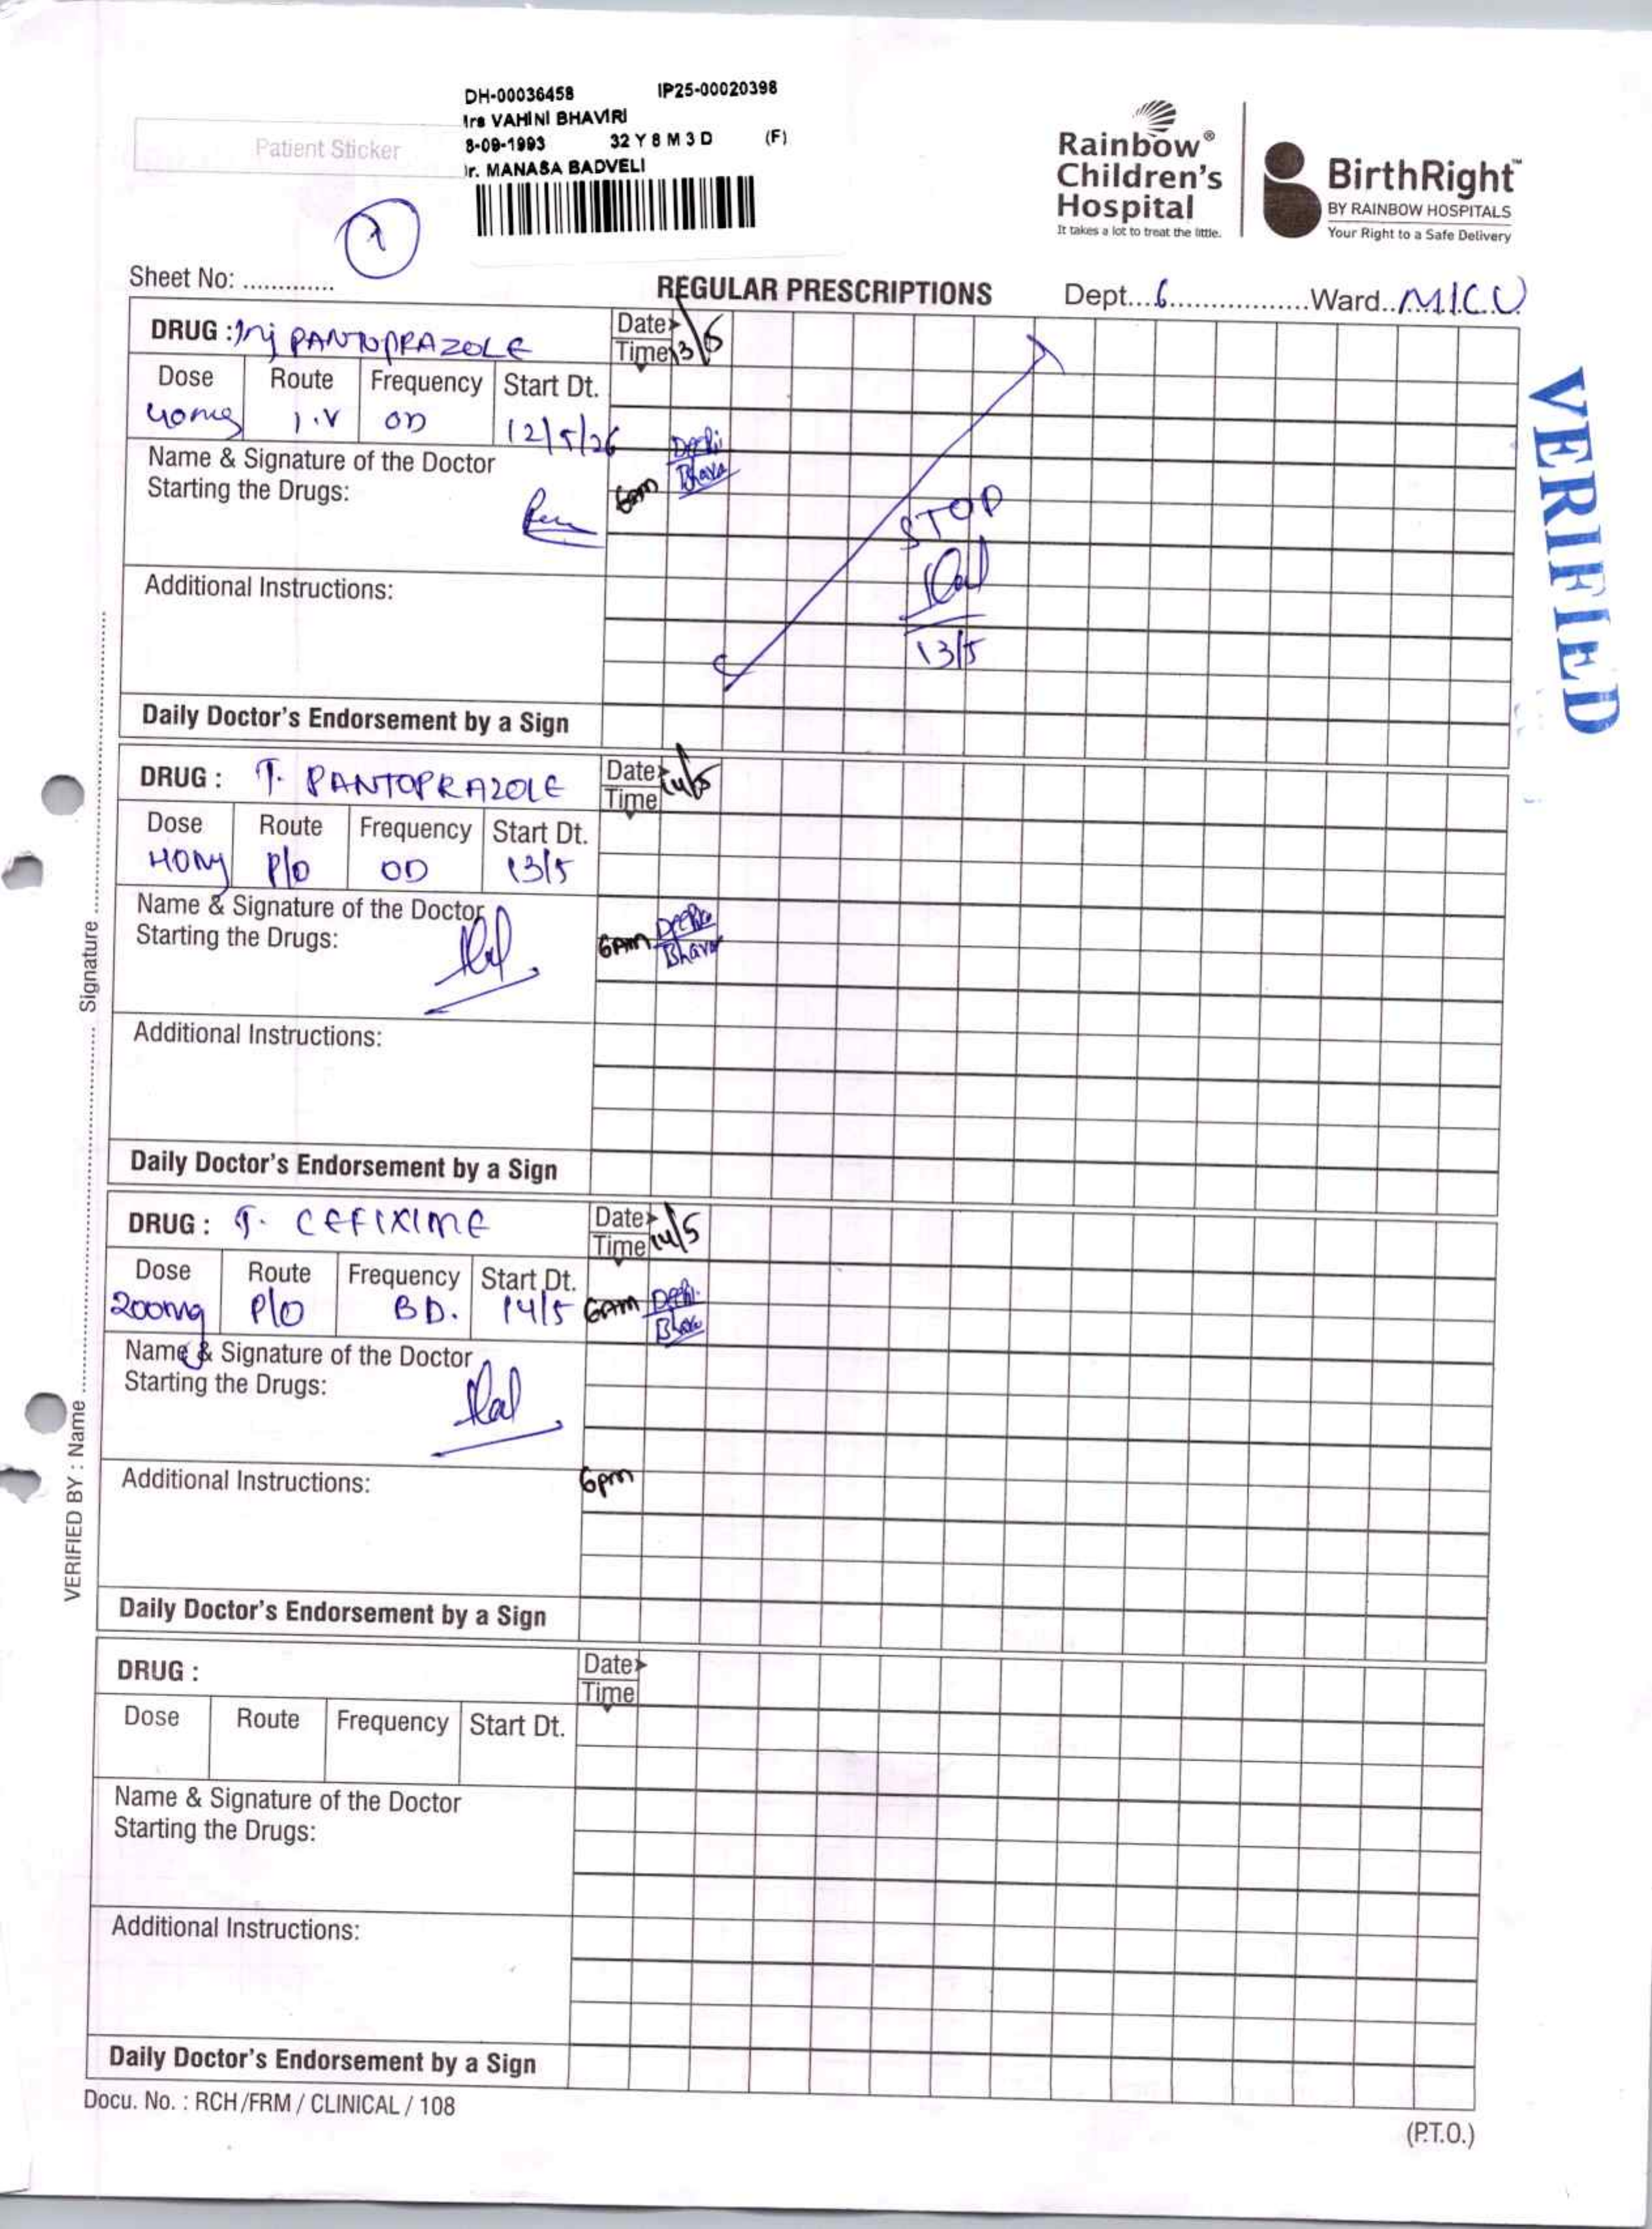 DH-00036458 IP25-00020398
Mrs VAHINI BHAVIRI
8-09-1993 32 Y 8 M 3 D (F)
Dr. MANASA BADVELI
Patient Sticker
Rainbow®
Children's
Hospital
It takes a lot to treat the little.
BirthRight™
BY RAINBOW HOSPITALS
Your Right to a Safe Delivery
Sheet No: .............
REGULAR PRESCRIPTIONS
Dept...6.................Ward..M.I.C.U.
VERIFIED
DRUG : Inj PANTOPRAZOLE
Date
Time 13/5
Dose Route Frequency Start Dt.
40mg I.V OD 12/5/26
Name & Signature of the Doctor
Starting the Drugs:
6am
STOP
13/5
Additional Instructions:
Daily Doctor's Endorsement by a Sign
DRUG : T. PANTOPRAZOLE
Date 14/5
Time
Dose Route Frequency Start Dt.
40mg P/O OD 13/5
Name & Signature of the Doctor
Starting the Drugs:
6AM
Additional Instructions:
Daily Doctor's Endorsement by a Sign
DRUG : T. CEFIXIME
Date
Time 14/5
Dose Route Frequency Start Dt.
200mg P/O BD. 14/5 6AM
Name & Signature of the Doctor
Starting the Drugs:
Additional Instructions:
6pm
Daily Doctor's Endorsement by a Sign
DRUG :
Date
Time
Dose Route Frequency Start Dt.
Name & Signature of the Doctor
Starting the Drugs:
Additional Instructions:
Daily Doctor's Endorsement by a Sign
VERIFIED BY : Name ........................ Signature ........................
Docu. No. : RCH/FRM / CLINICAL / 108
(P.T.O.)